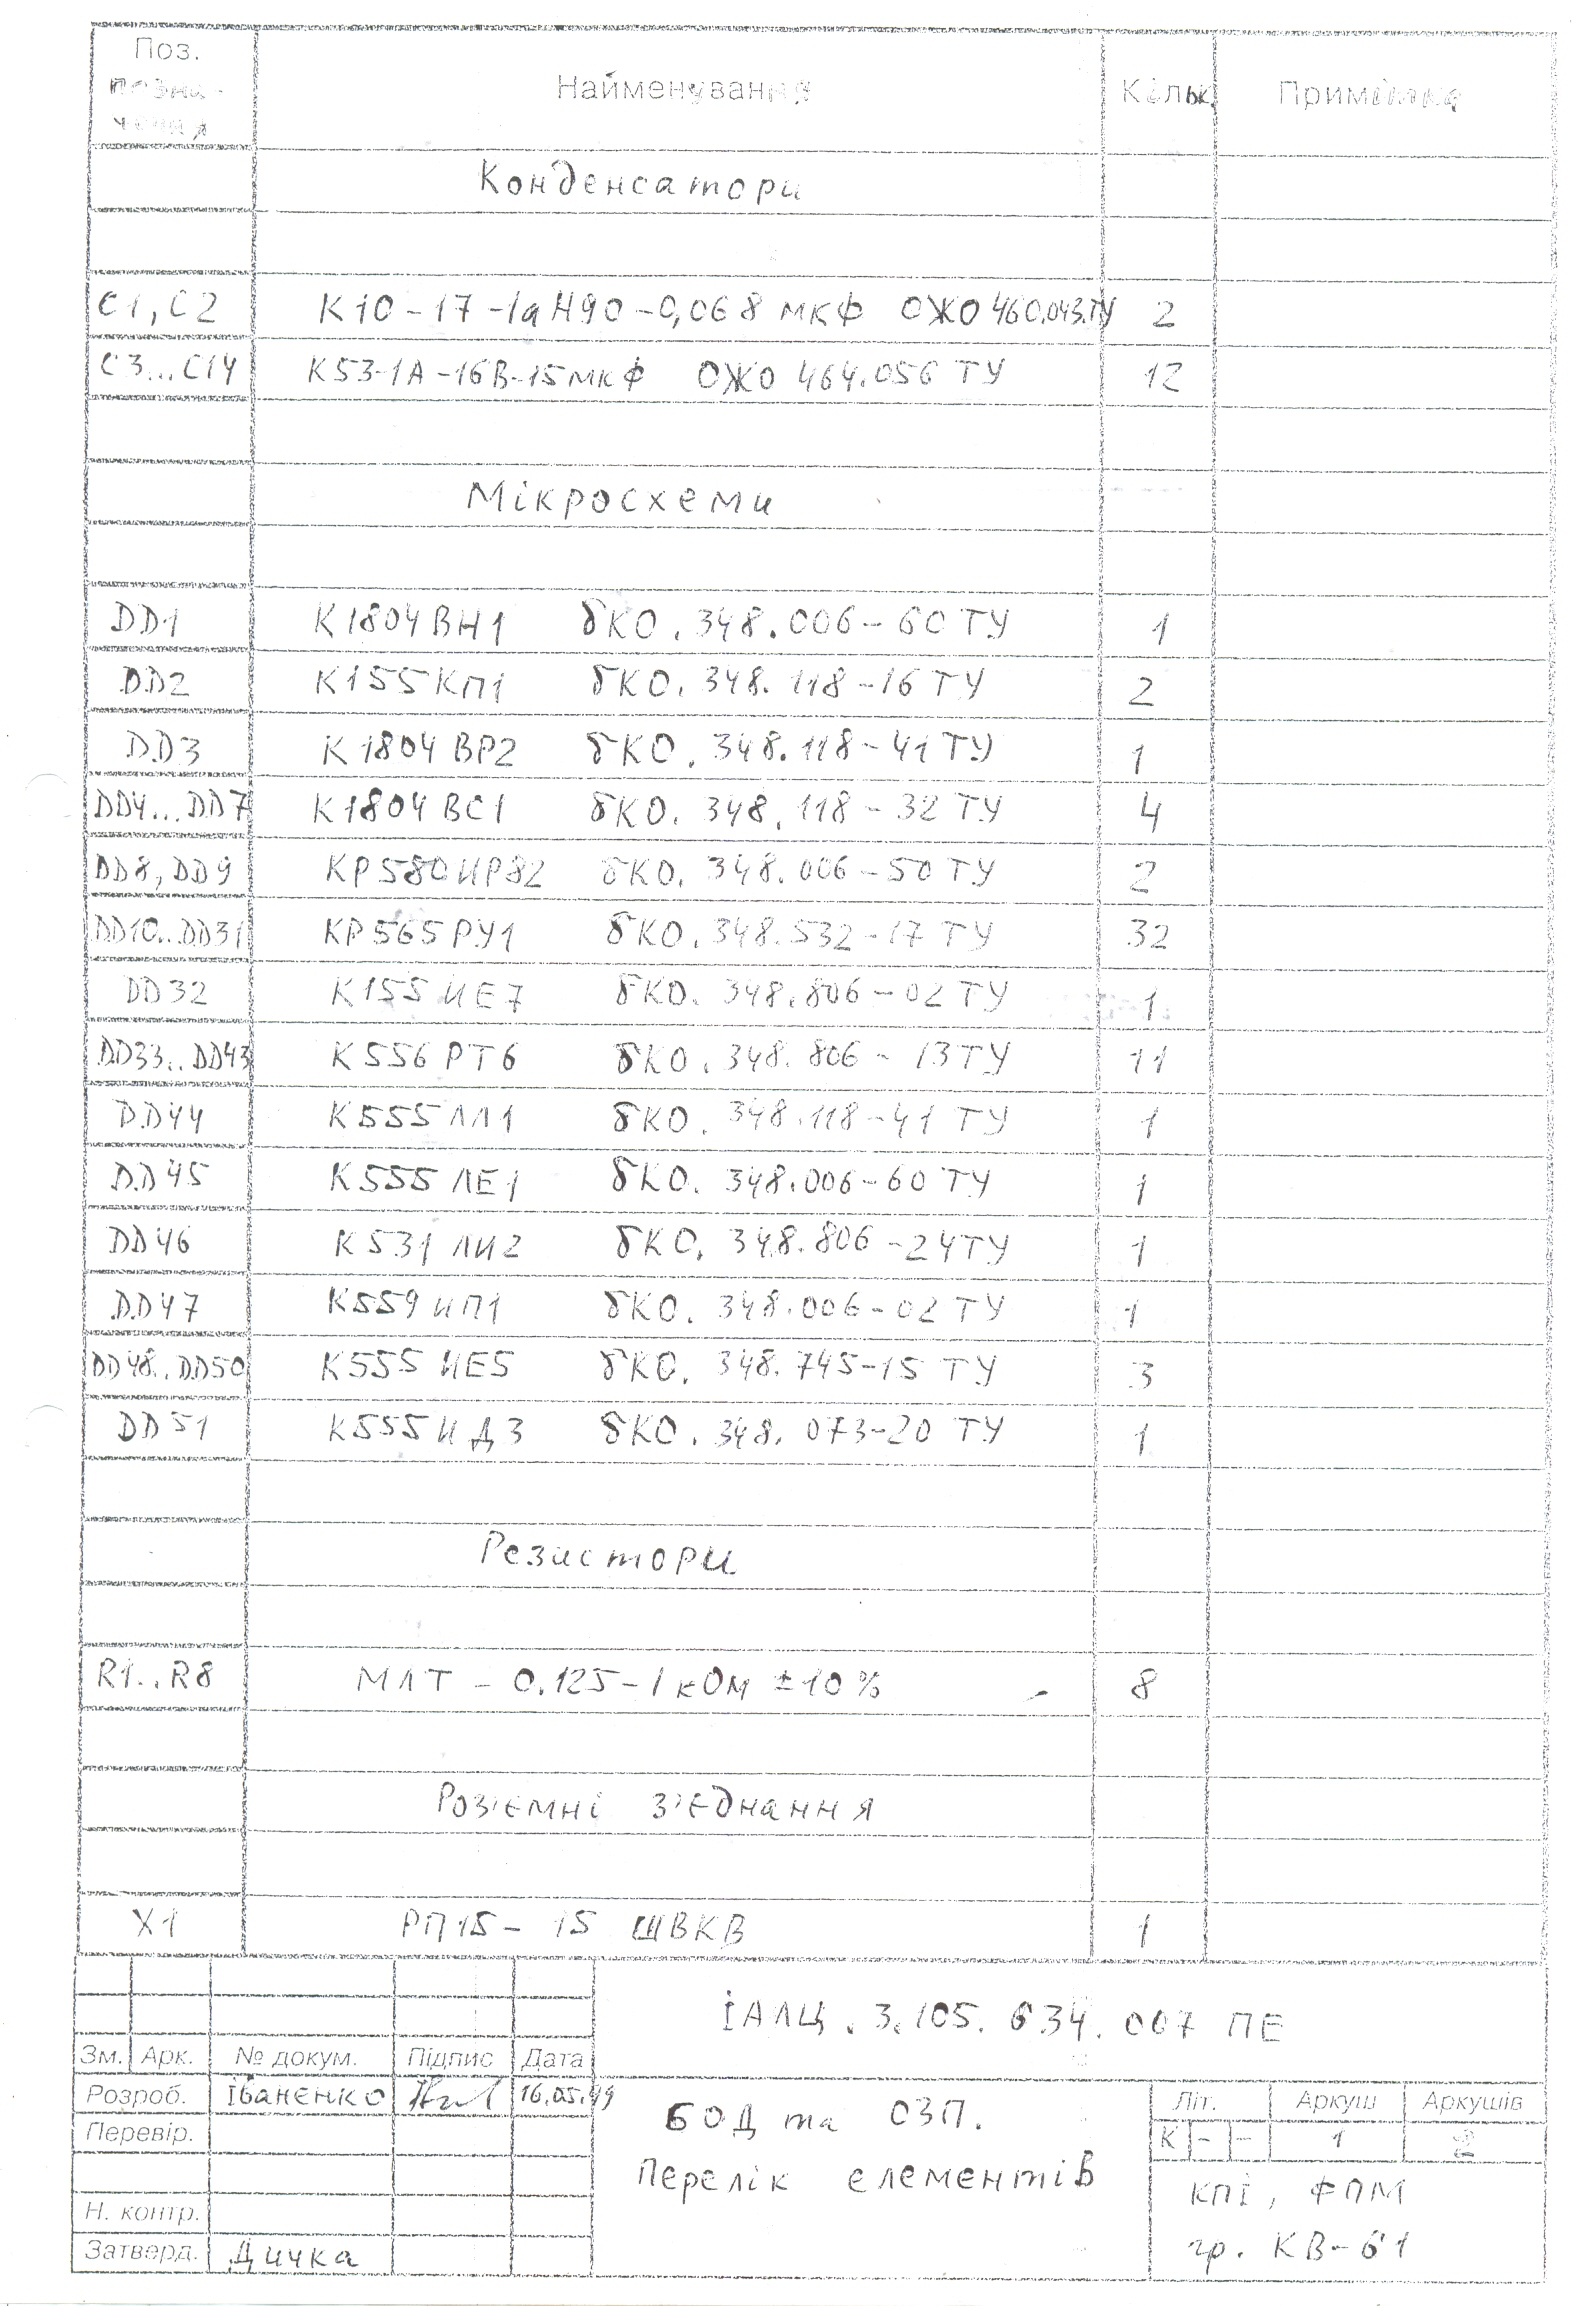 Поз. позна- чення Найменування Кільк. Примітка
Конденсатори
C1, C2 К10-17-1аН90-0,068 мкФ ОЖО 460.043.ТУ 2
C3...C14 К53-1А-16В-15мкФ ОЖО 464.056 ТУ 12
Мікросхеми
DD1 К1804ВН1 бКО.348.006-60 ТУ 1
DD2 К155КП1 бКО.348.118-16 ТУ 2
DD3 К1804ВР2 бКО.348.118-41 ТУ 1
DD4...DD7 К1804ВС1 бКО.348.118-32 ТУ 4
DD8, DD9 КР580ИР82 бКО.348.006-50 ТУ 2
DD10..DD31 КР565РУ1 бКО.348.532-17 ТУ 32
DD32 К155ИЕ7 бКО.348.806-02 ТУ 1
DD33..DD43 К556РТ6 бКО.348.806-13 ТУ 11
DD44 К555ЛЛ1 бКО.348.118-41 ТУ 1
DD45 К555ЛЕ1 бКО.348.006-60 ТУ 1
DD46 К531ЛИ2 бКО.348.806-24 ТУ 1
DD47 К559ИП1 бКО.348.006-02 ТУ 1
DD48..DD50 К555ИЕ5 бКО.348.745-15 ТУ 3
DD51 К555ИД3 бКО.348.073-20 ТУ 1
Резистори
R1..R8 МЛТ - 0.125 - 1 кОм ±10% 8
Роз'ємні з'єднання
X1 РП15- 15 ШВКВ 1
ІАЛЦ.3.105.634.007 ПЕ
Зм. Арк. № докум. Підпис Дата
Розроб. Іваненко 16.05.99
Перевір.
Н. контр.
Затверд. Дичка
БОД та ОЗП.
Перелік елементів
Літ. Аркуш Аркушів
К - - 1 2
КПІ, ФПМ
гр. КВ-61